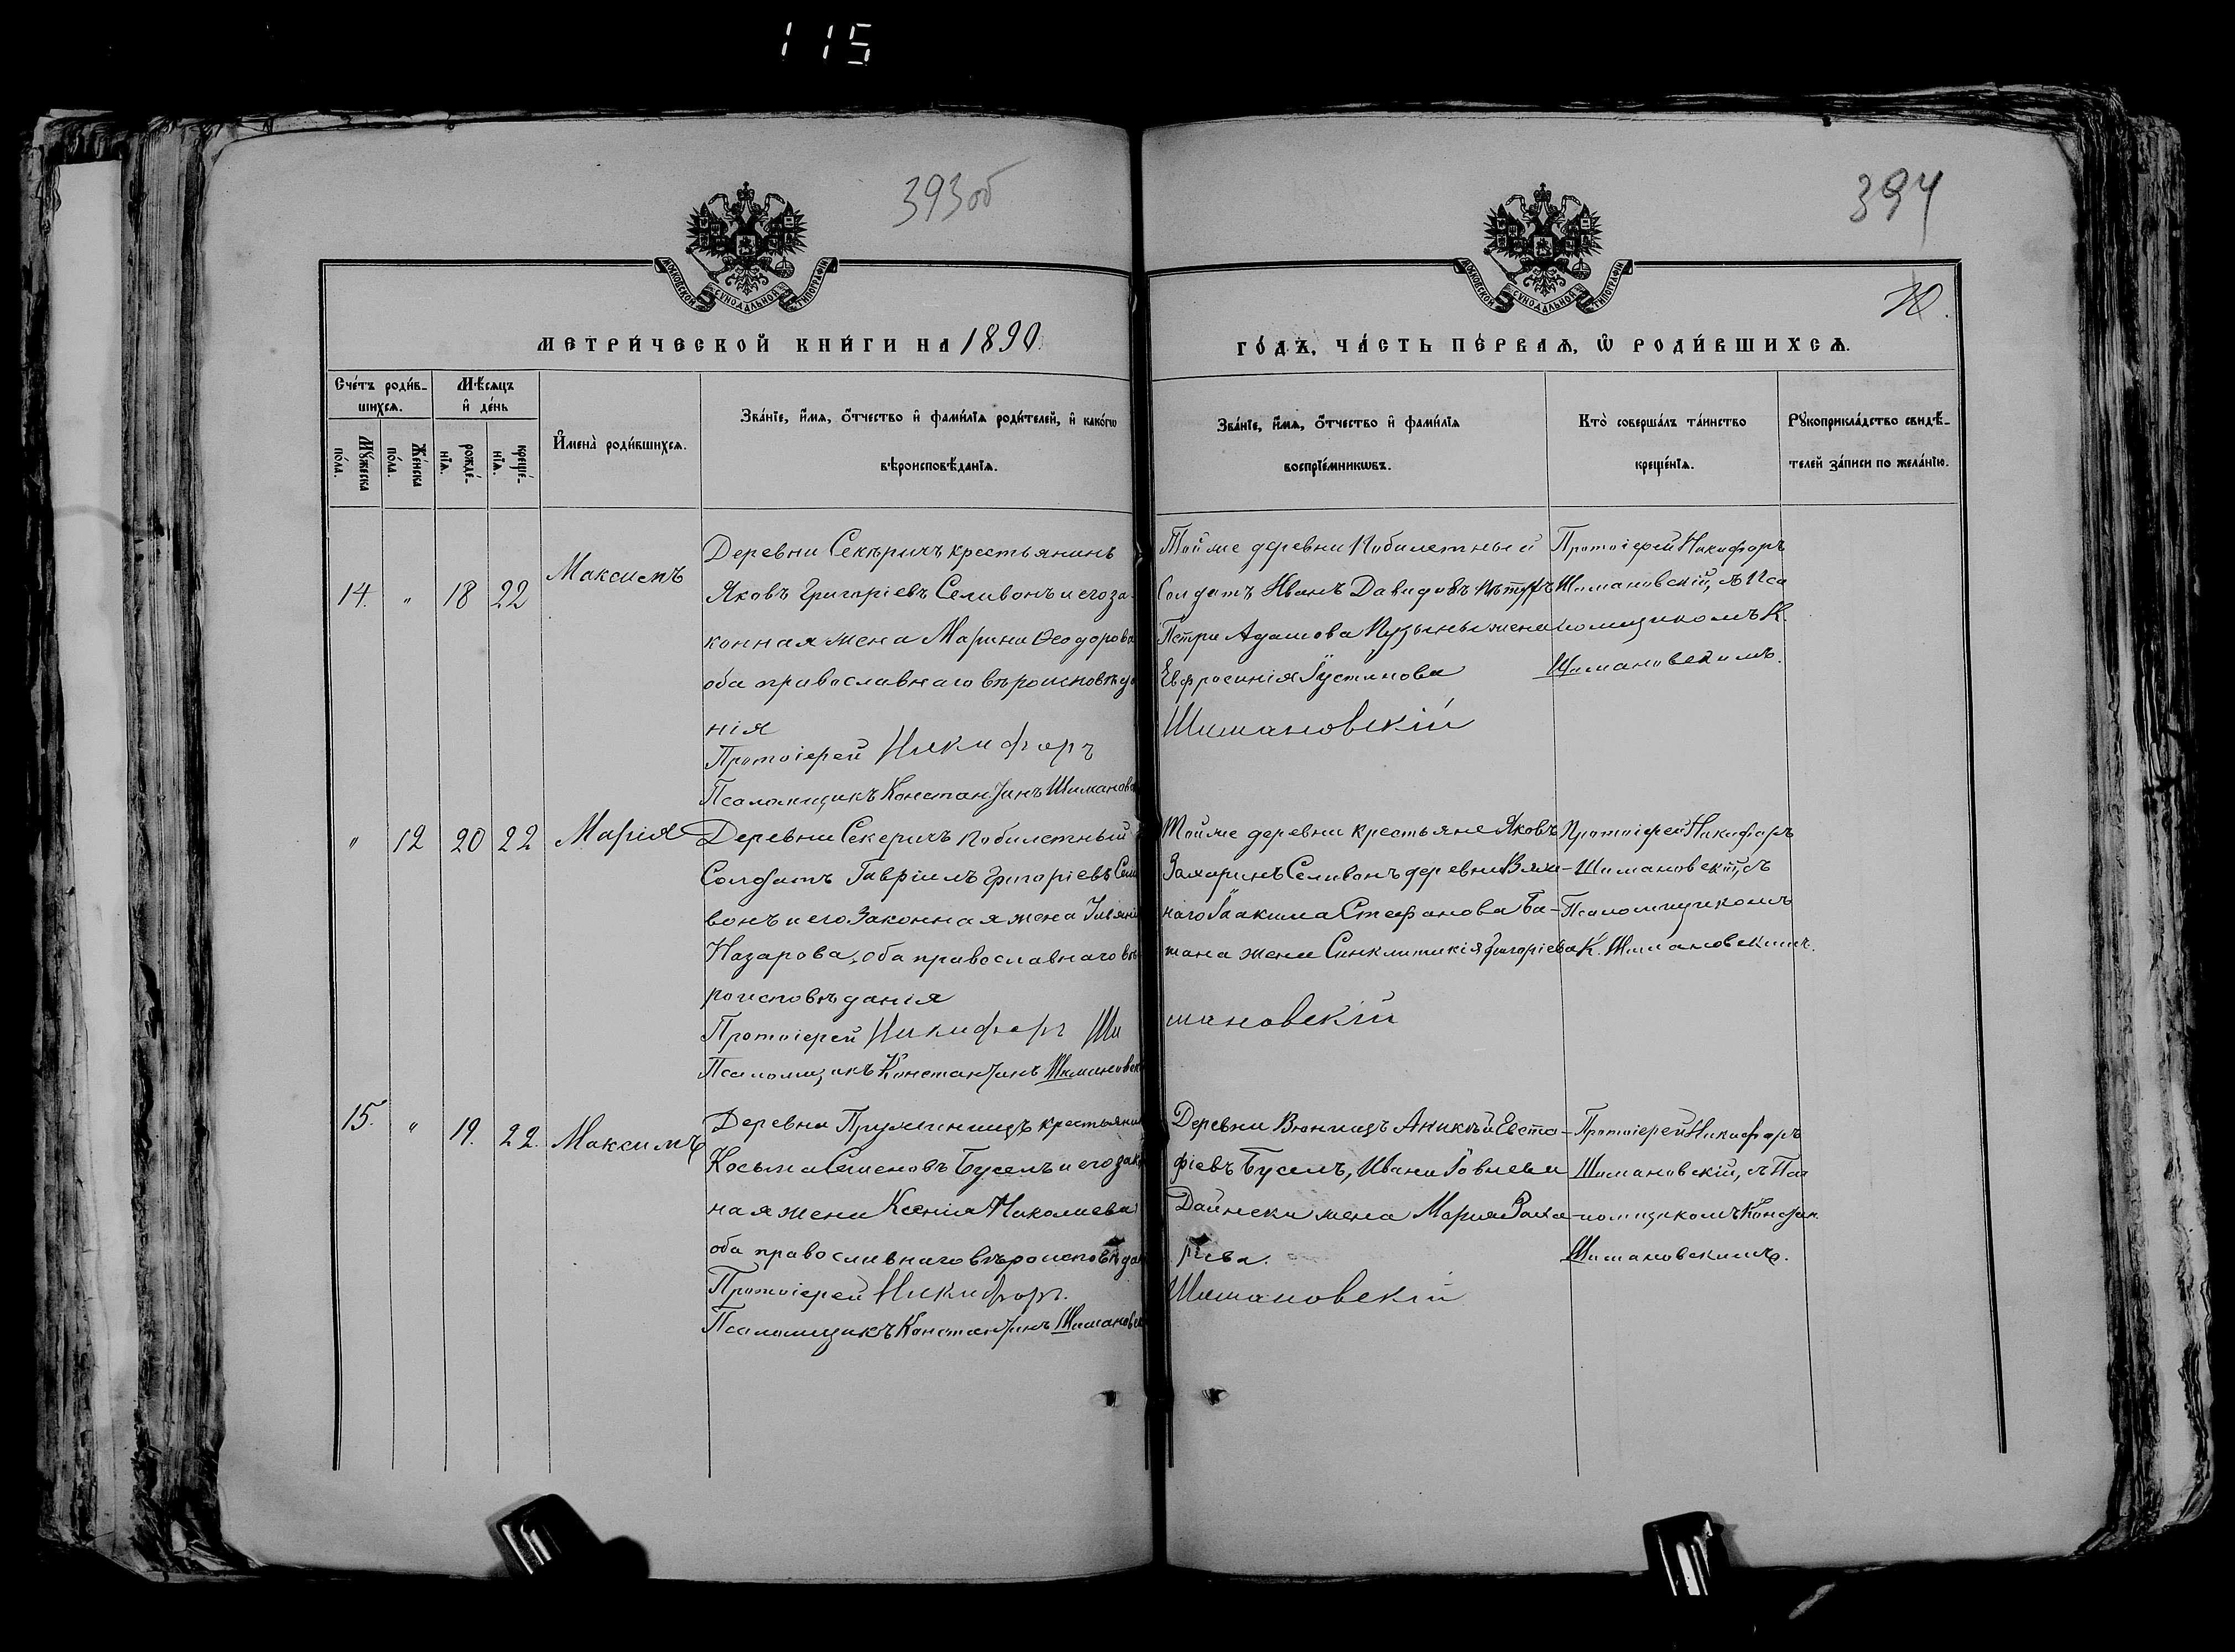 115
393об
394
МОСКОВСКОЙ СУНОДАЛЬНОЙ ТИПОГРАФІИ
МОСКОВСКОЙ СУНОДАЛЬНОЙ ТИПОГРАФІИ
10.
МЕТРИ́ЧЕСКОЙ КНИ́ГИ НА 1890
ГО́ДЪ, ЧА́СТЬ ПЕ́РВАѦ, Ѡ РОДИ́ВШИХСѦ.
Сче́тъ роди́в-
шихсѧ.
Мѣ́сѧцъ
и҆ де́нь
Мꙋ́жеска
по́ла.
Же́нска
по́ла.
рожде́-
нїѧ.
креще́-
нїѧ.
И҆мена̀ роди́вшихсѧ.
Зва́нїе, и҆́мѧ, ѻ҆́тчество и҆ фами́лїѧ роди́телей, и҆ како́гѡ
вѣроисповѣ́данїѧ.
Зва́нїе, и҆́мѧ, ѻ҆́тчество и҆ фами́лїѧ
воспрїе́мникѡвъ.
Кто̀ соверша́лъ та́инство
креще́нїѧ.
Рꙋкоприкла́дство свидѣ́-
телей за́писи по жела́нїю.
14. " 18 22 Максимъ
Деревни Секѣричъ крестьянинъ
Яковъ Григоріевъ Селивонъ и его за-
конная жена Марина Ѳеодорова
оба православнаго вѣроисповѣда
нія
Протоіерей Никифоръ
Псаломщикъ Константинъ Шиманов
Той же деревни Побилетный
Солдатъ Иванъ Давидовъ
Петра Адамова жена
Евфросинія Іустинова
Шимановскій
Протоіерей Никифоръ
Шимановскій, съ Пса
ломщикомъ К.
Шимановскимъ.
" 12 20 22 Марія
Деревни Секеричъ Побилетный
Солдатъ Гавріилъ Григоріевъ Сели
вонъ и его Законная жена
Назарова, оба православнаго вѣ-
роисповѣданія
Протоіерей Никифоръ Ши
Псаломщикъ Константинъ Шимановск
Той же деревни крестьяне Яковъ
Захаринъ Селивонъ деревни
Іоакима Стефанова Ба-
тана жена Синклитикія Григорьева
мановскій
Протоіерей Никифоръ
Шимановскій, съ
Псаломщикомъ
К. Шимановскимъ.
15. " 19. 22. Максимъ
Деревни Пружинищъ крестьянин
Косьма Семеновъ Бусель и его закон
ная жена Ксенія Николаева
оба православнаго вѣроисповѣдан
Протоіерей Никифоръ.
Псаломщикъ Константинъ Шимановск
Деревни Вюнищъ Аникій Евста-
фіевъ Бусель, Ивана Іовлева
Дайнеки жена Марія Заха-
рьева.
Шимановскій
Протоіерей Никифоръ
Шимановскій, съ Пса-
ломщикомъ Констан.
Шимановскимъ.